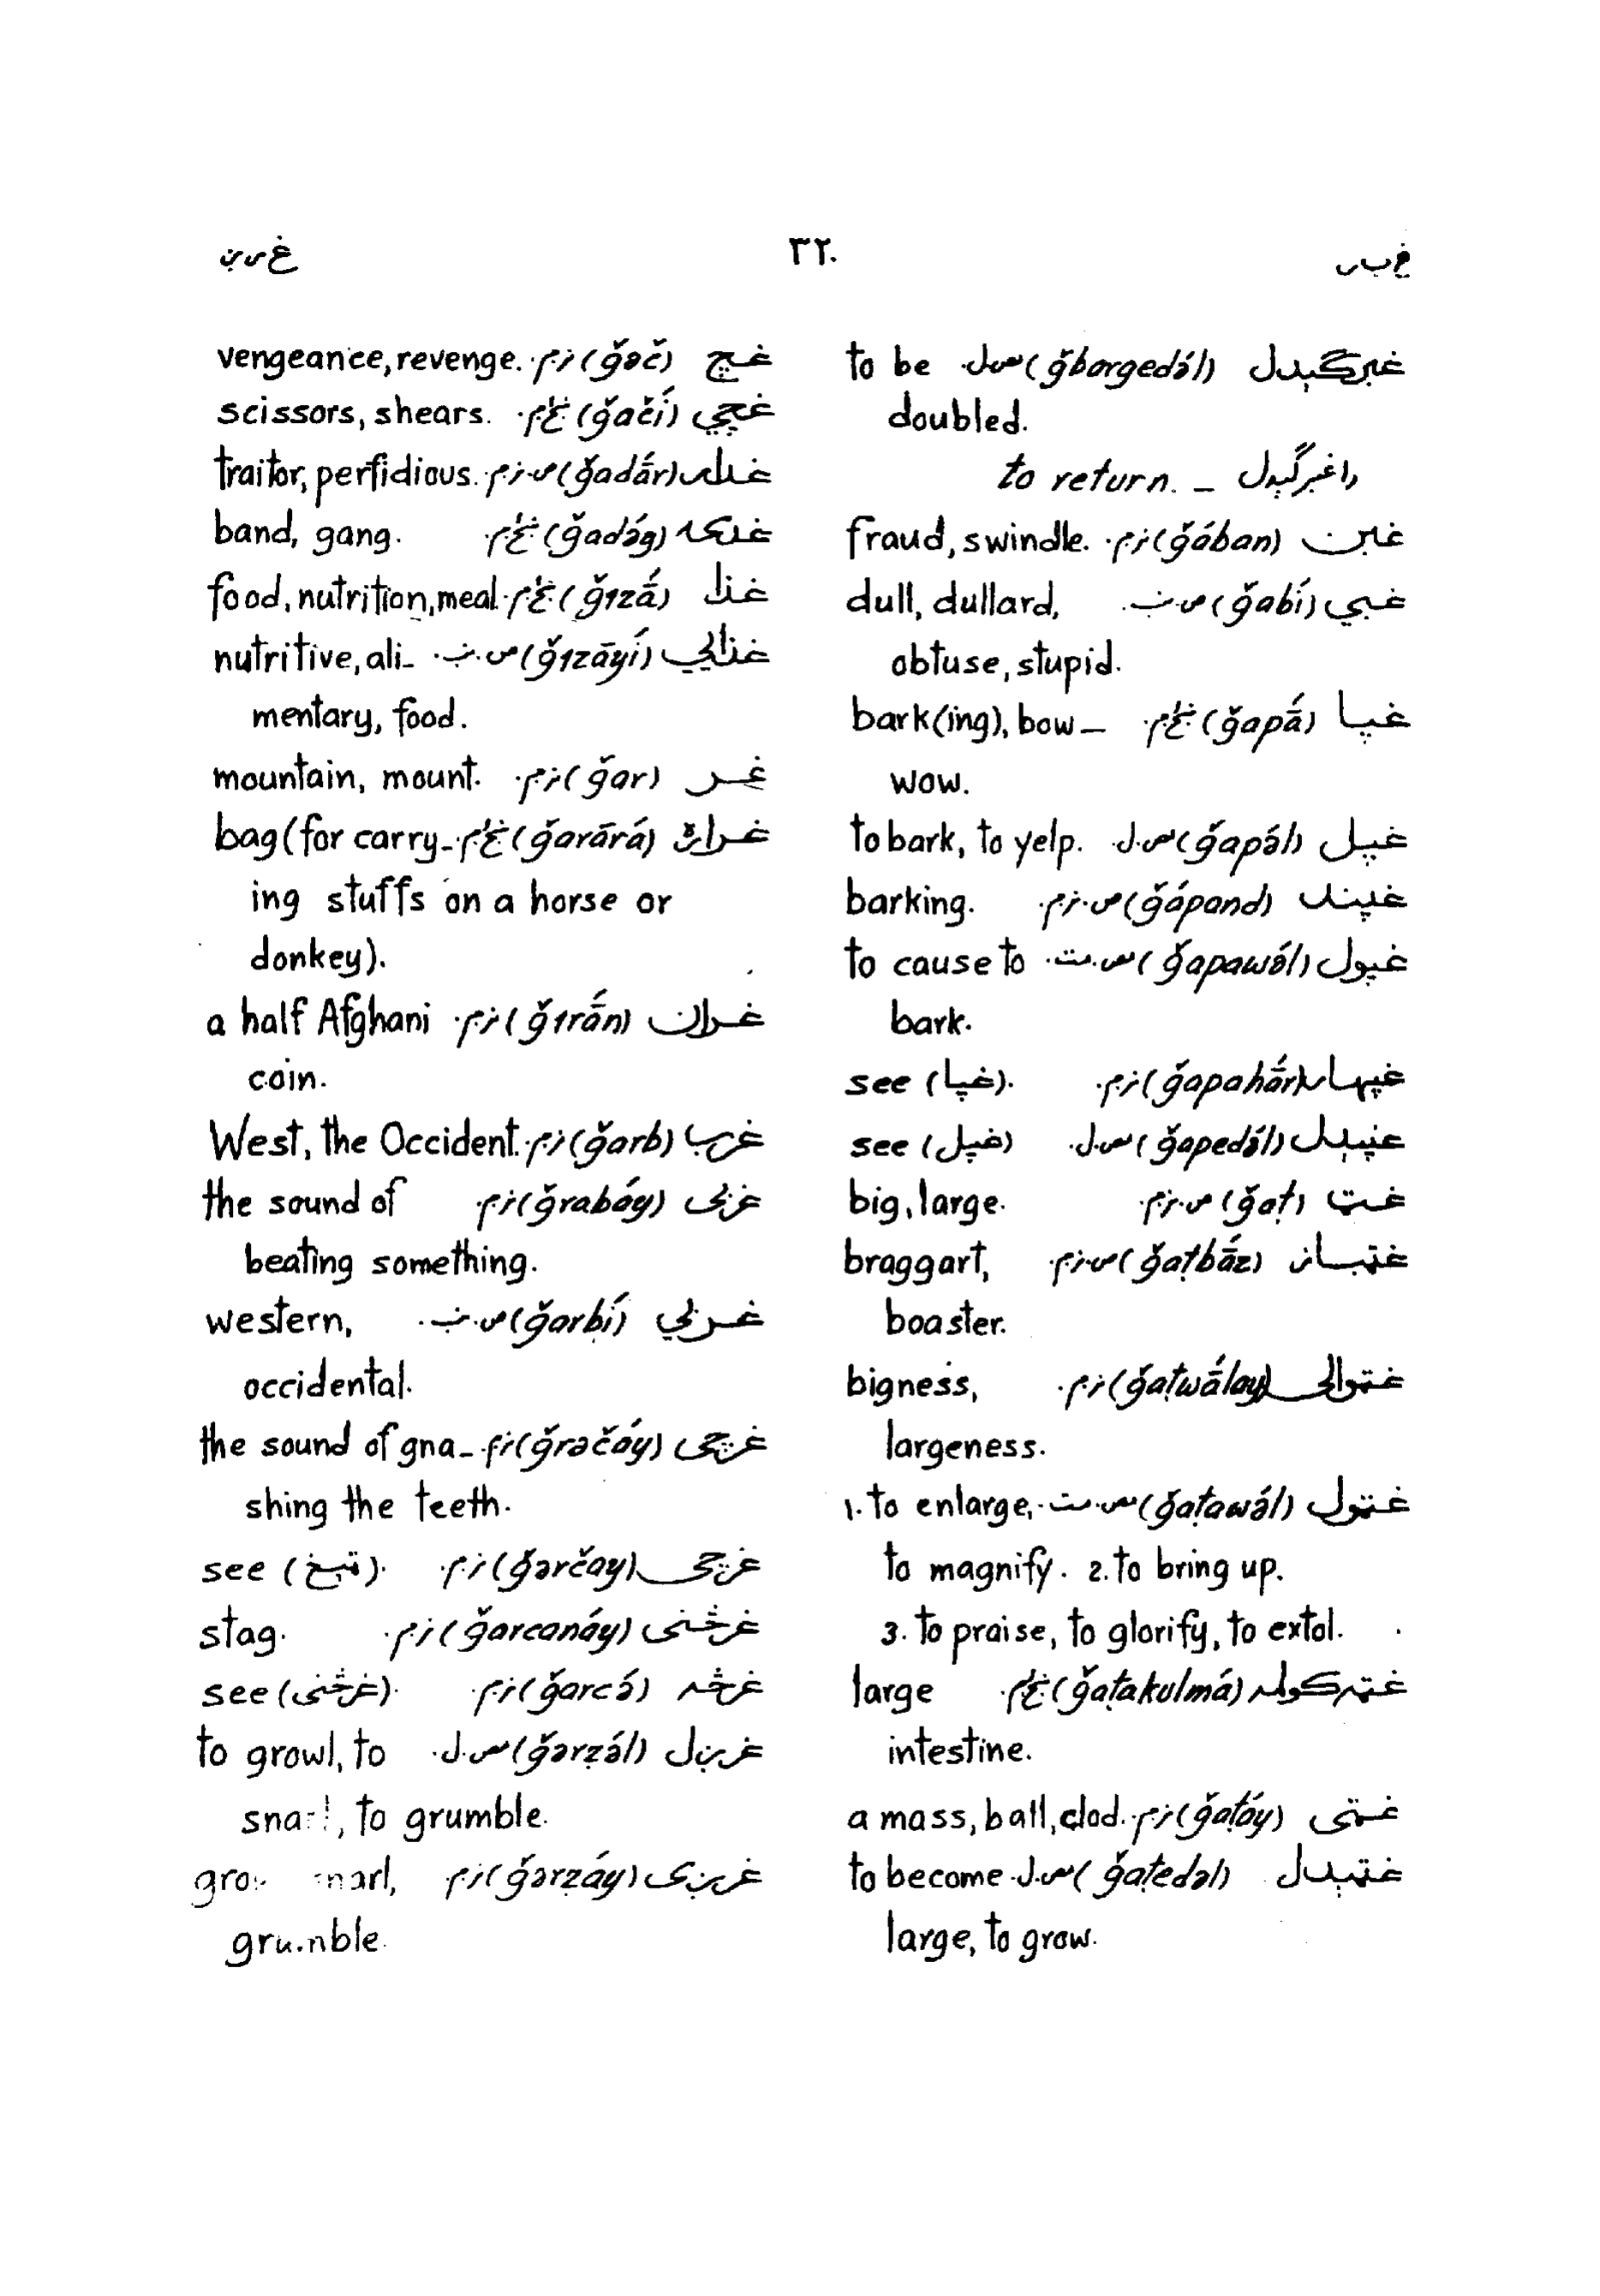 غ ب ر
٣٢٠
غ ر ن
غبرګېدل (ǧbargedә́l) مص.ل. to be
doubled.
راغبرګېدل _ to return.
غبن (ǧában) نر.م. fraud, swindle.
غبي (ǧabí) ص.ن. dull, dullard,
obtuse, stupid.
غپا (ǧapā́) ښځ.م. bark(ing), bow-
wow.
غپل (ǧapә́l) مص.ل. to bark, to yelp.
غپند (ǧápand) ص.نر.م. barking.
غپول (ǧapawә́l) مص.مت. to cause to
bark.
غپهار (ǧapahā́r) نر.م. see (غپا).
غپېدل (ǧapedә́l) مص.ل. see (غپل)
غټ (ǧaṭ) ص.نر.م. big, large.
غټباز (ǧaṭbā́z) ص.نر.م. braggart,
boaster.
غټوالی (ǧaṭwā́lay) نر.م. bigness,
largeness.
غټول (ǧaṭawә́l) مص.مت. 1. to enlarge,
to magnify. 2. to bring up.
3. to praise, to glorify, to extol.
غټه کولمه (ǧaṭakulmá) ښځ.م. large
intestine.
غټی (ǧaṭáy) نر.م. a mass, ball, clod.
غټېدل (ǧaṭedәl) مص.ل. to become
large, to grow.
غچ (ǧәč) نر.م. vengeance, revenge.
غچي (ǧačí) ښځ.م. scissors, shears.
غدار (ǧadā́r) ص.نر.م. traitor, perfidious.
غدګه (ǧadә́g) ښځ.م. band, gang.
غذا (ǧızā́) ښځ.م. food, nutrition, meal.
غذايي (ǧızāyí) ص.ن. nutritive, ali-
mentary, food.
غر (ǧar) نر.م. mountain, mount.
غراره (ǧarārá) ښځ.م. bag (for carry-
ing stuffs on a horse or
donkey).
غران (ǧırā́n) نر.م. a half Afghani
coin.
غرب (ǧarb) نر.م. West, the Occident.
غربی (ǧrabáy) نر.م. the sound of
beating something.
غربي (ǧarbí) ص.ن. western,
occidental.
غرچی (ǧrәčáy) نر.م. the sound of gna-
shing the teeth.
غرچی (ǧәrčay) نر.م. see ( ).
غرڅنی (ǧarcanáy) نر.م. stag.
غرڅه (ǧarcә́) نر.م. see (غرڅنی).
غړنبل (ǧәrẓә́l) مص.ل. to growl, to
snarl, to grumble.
(ǧәrẓáy) نر.م. snarl,
grumble.